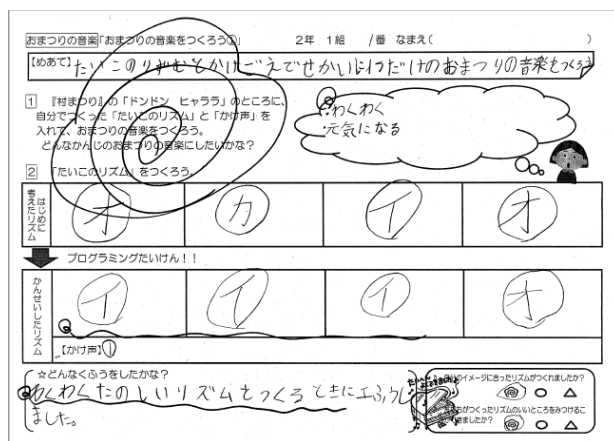 おまつりの音楽「おまつりの音楽をつくろう①」 2年 1組 /番 なまえ( )
【めあて】たいこのりずむとかけごえでせかいに1つだけのおまつりの音楽をつくろう
1 『村まつり』の「ドンドン ヒャララ」のところに、
自分でつくった「たいこのリズム」と「かけ声」を
入れて、おまつりの音楽をつくろう。
どんなかんじのおまつりの音楽にしたいかな?
・わくわく
・元気になる
2 「たいこのリズム」をつくろう。
はじめに考えたリズム
オ カ イ オ
プログラミングたいけん!!
かんせいしたリズム
イ イ イ オ
【かけ声】①
☆どんなくふうをしたかな?
わくわくたのしいリズムをつくるときに工ふうし
ました。
イメージに合ったリズムがつくれましたか?
○ △
がつくったリズムのいいところをみつけるこ
きましたか?
○ △